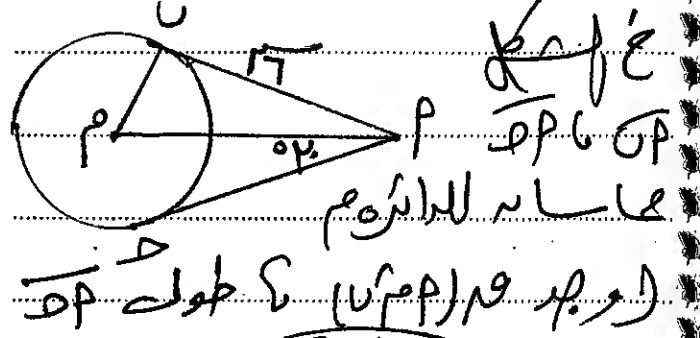 في الشكل
أب ، أجـ
مماسان للدائرة م
أوجد ق(أم^ب) ؟ طول أجـ
ب
١٦
م
أ
٣٠°
جـ